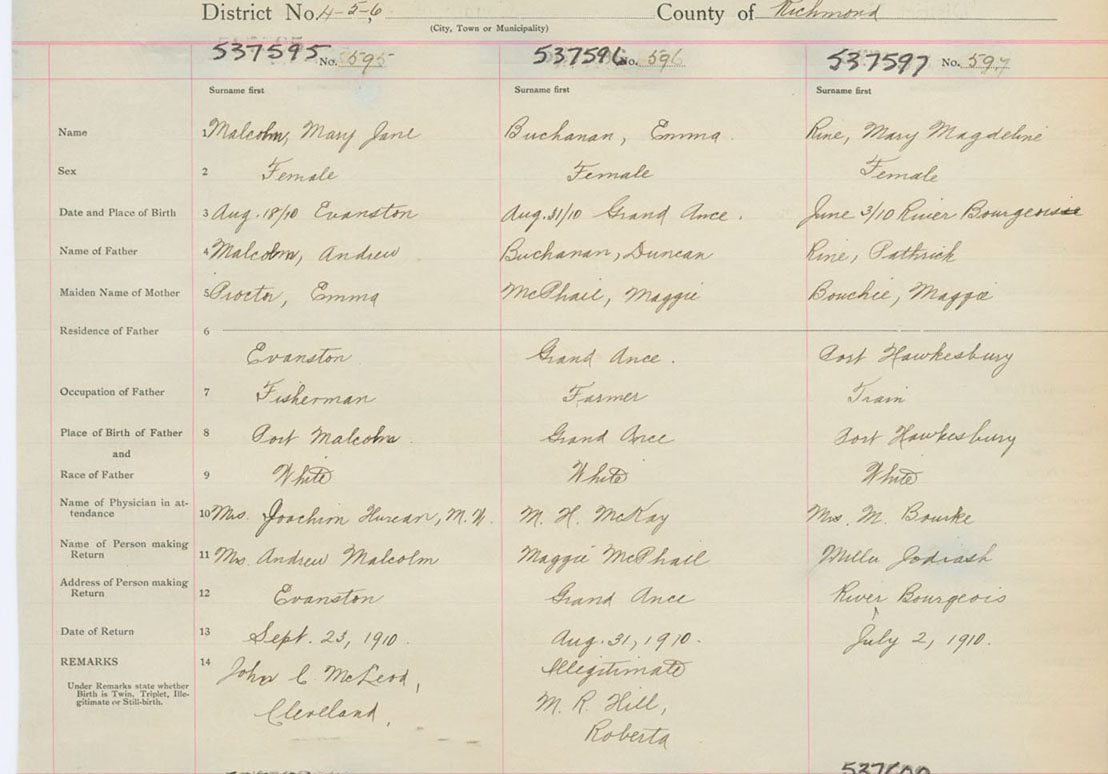 District No. 4-5-6 County of Richmond
(City, Town or Municipality)
537595 No. 595 537596 No. 596 537597 No. 597
Surname first Surname first Surname first
Name 1 Malcolm, Mary Jane Buchanan, Emma. Rine, Mary Magdeline
Sex 2 Female Female Female
Date and Place of Birth 3 Aug. 18/10 Evanston Aug. 31/10 Grand Ance. June 3/10 River Bourgeois
Name of Father 4 Malcolm, Andrew Buchanan, Duncan Rine, Pathrick
Maiden Name of Mother 5 Proctor, Emma McPhail, Maggie Bouchie, Maggie
Residence of Father 6
Evanston Grand Ance. Port Hawkesbury
Occupation of Father 7 Fisherman Farmer Train
Place of Birth of Father 8 Port Malcolm. Grand Ance Port Hawkesbury
and
Race of Father 9 White White White
Name of Physician in at-
tendance 10 Mrs. Joachim M. W. M. H. McKay Mrs. M. Bourke
Name of Person making
Return 11 Mrs. Andrew Malcolm Maggie McPhail
Address of Person making
Return 12 Evanston Grand Ance River Bourgeois
Date of Return 13 Sept. 23, 1910. Aug. 31, 1910. July 2, 1910.
REMARKS 14 John C. McLeod, Illegitimate
Under Remarks state whether
Birth is Twin, Triplet, Ille-
gitimate or Still-birth.
Cleveland, M. R. Hill,
Roberta
537600